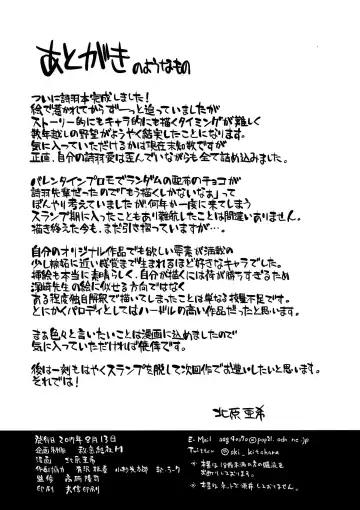 あとがきのようなもの
ついに詩羽本完成しました!
絵で惹かれてからずーっと迫っていましたが
ストーリー的にもキャラ的にも描くタイミングが難しく
数年越しの野望がようやく結実したことになります。
気に入っていただけるかは現在未知数ですが
正直、自分の詩羽愛は歪んでいながらも全て詰め込みました。
バレンタインプロモでランダムの配布のチョコが
詩羽先輩だったので「もう描くしかないなぁ」って
ぼんやり考えていましたが、何年か一度に来てしまう
スランプ期に入ったこともあり難航したことは間違いありません。
描き終えた今も、まだ引き摺っていますが…。
自分のオリジナル作品でも欲しい要素が満載の
少し嫉妬に近い感覚まで生まれるほど好きなキャラでした。
挿絵も本当に素晴らしく、自分が描くには荷が勝ちすぎるため
深崎先生の絵に似せる方向ではなく
ある程度独自解釈で描いてしまったことは単なる技量不足です。
とにかくパロディとしてはハードルの高い作品だったと思います。
まぁ色々と言いたいことは漫画に込めましたので
気に入っていただければ僥倖です。
後は一刻もはやくスランプを脱して次回作でお逢いしたいと思います。
それでは!
北原亜希
発行日 2017年8月13日
発行
漫画 北原亜希
印刷 大信印刷
Twitter @aki_kitahara